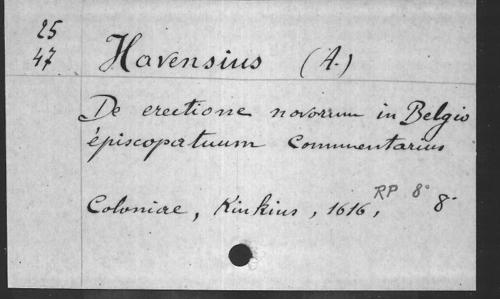 25
47
Havensius (A.)
De erectione novorum in Belgio
épiscopatuum Commentarius
Coloniae, Kinkius, 1616, RP 8° 8°